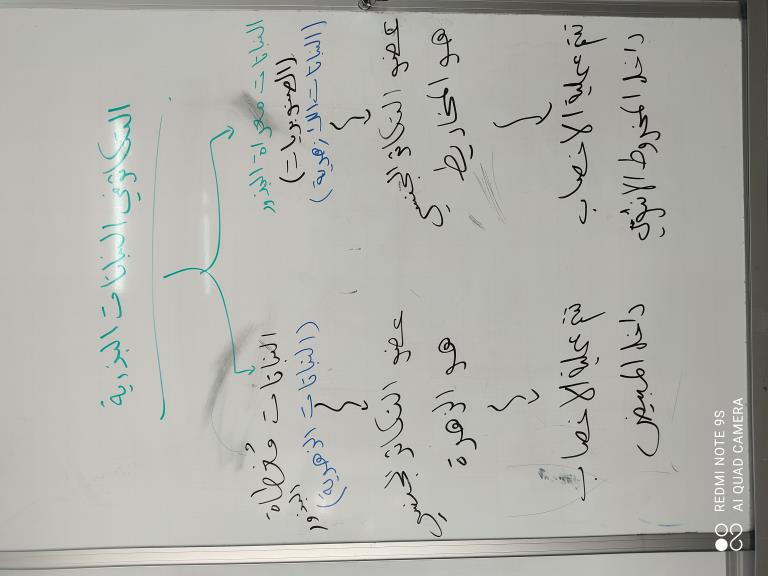 التكاثر في النباتات البذرية
النباتات معراة البذور
(الصنوبريات)
(النباتات اللازهرية)
عضو التكاثر الجنسي
هو المخاريط
تتم عملية الاخصاب
داخل المخروط الانثوي
النباتات مغطاة
البذور
(النباتات الزهرية)
عضو التكاثر الجنسي
هو الزهرة
تتم عملية الاخصاب
داخل المبيض
REDMI NOTE 9S
AI QUAD CAMERA